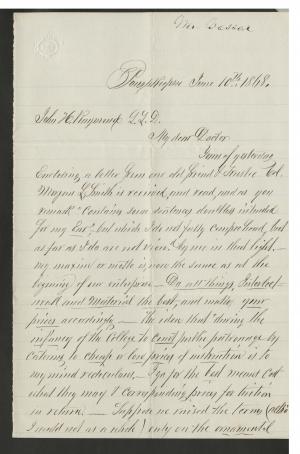 Mr. Vassar
Poughkeepsie June 10th 1868.
John H. Raymond L.L.D.
My dear Doctor
Yours of yesterday
Enclosing a letter from our old friend & Trustee Ed.
Magoon L. Smith is received, and read, and as you
remark "Contains some sentences doubtless intended
for my Ear", but which I do not fully comprehend, but
as far as I do are not viewed by me in that light. —
my maxim or motto is now the same as at the
begining of our enterprise — Do all things, Intellect-
ual and Material the best, and make your
prices accordingly. — The idea that during the
infancy of the College to court public patronage by
catering to cheap or low prices of instruction is to
my mind rediculous. I go for the best means Cost
what they may & corresponding prices for tuition
in return. — Suppose we raised the terms (altho
I would not as a whole) only on the ornamental